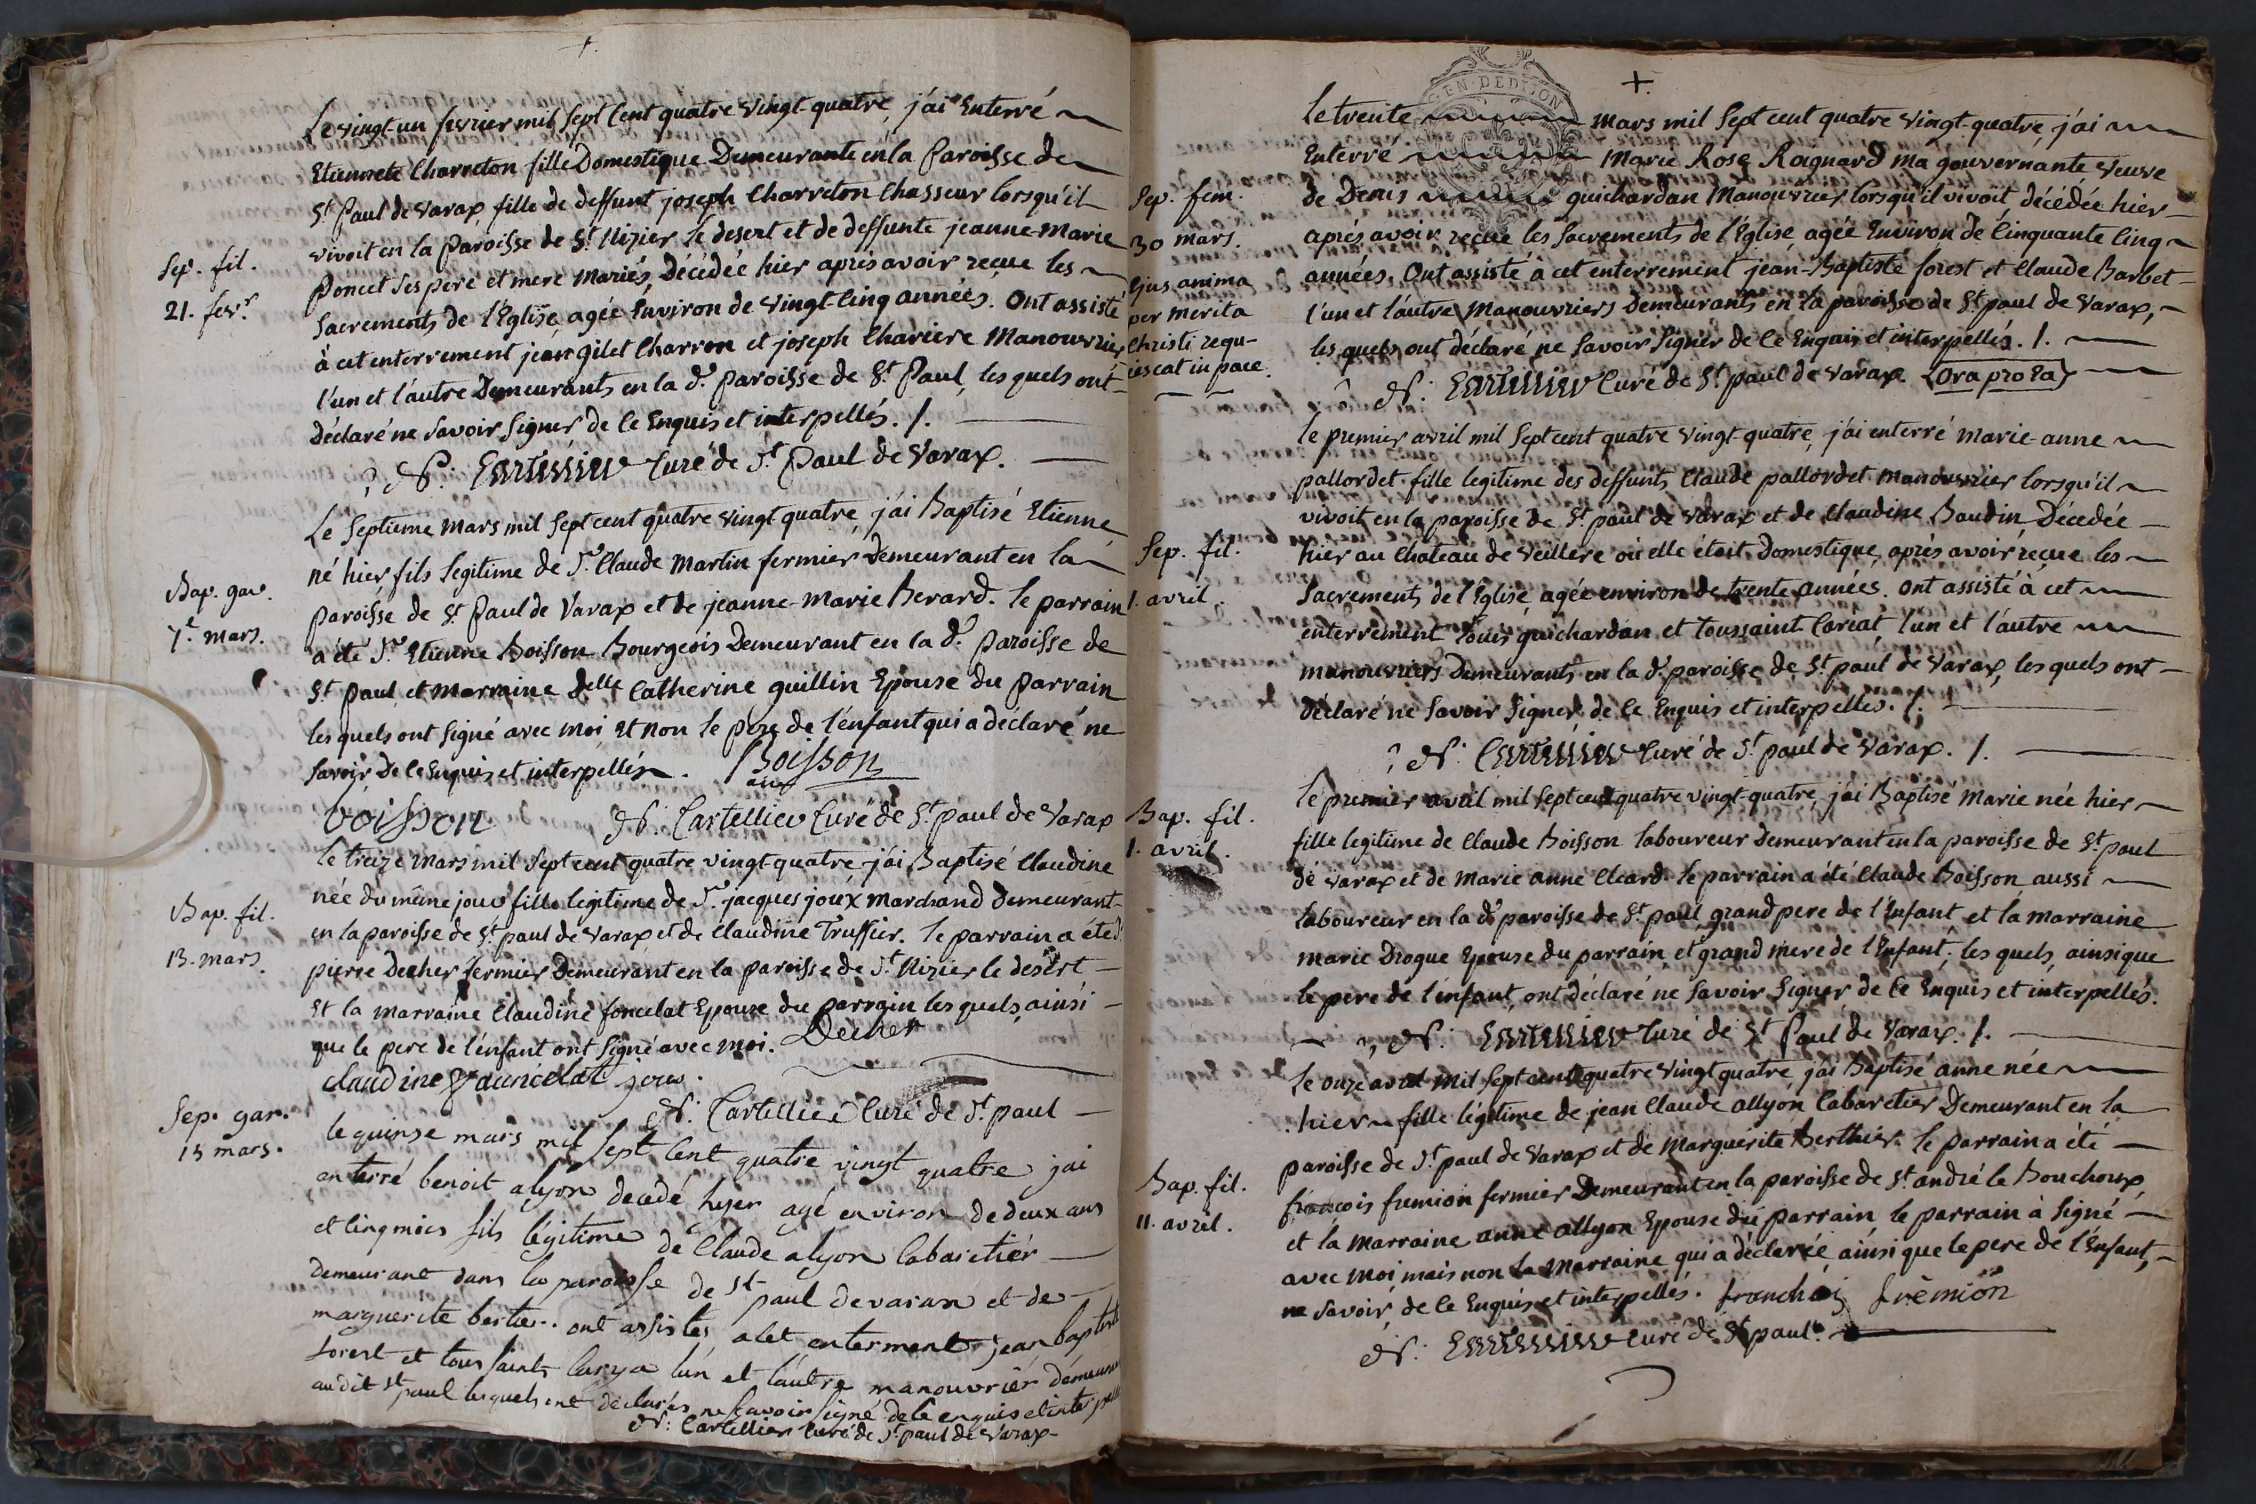 +
Le vingt-un fevrier mil sept cent quatre vingt-quatre, j'ai Enterré
Etiennete Charreton fille Domestique Demeurante en la Paroisse de
St. Paul de Varax, fille de deffunt joseph Charreton Chasseur lorsqu'il
vivoit en la Paroisse de St. Nizier le desert et de deffunte jeanne-Marie
Sep. fil.
21. fevr.
Poncet ses pere et mere mariés, Décédée hier après avoir reçue les
Sacrements de l'Eglise, agée Environ de vingt-cinq années. Ont assisté
à cet enterrement jean gilet Charron et joseph Chariere Manouvrier
l'un et l'autre Demeurants en la de. Paroisse de St. Paul, les quels ont
Déclaré ne savoir signer de ce Enquis et interpellés. /.
N. Cartellier Curé de St. Paul de Varax.
Le Septieme mars mil sept cent quatre vingt quatre, j'ai Baptisé Etienne
né hier, fils legitime de Sr. Claude Martin fermier Demeurant en la
Bap. gar.
7e. mars.
Paroisse de St. Paul de Varax et de jeanne-Marie Berard. le parrain
a été Sr. Etienne Boisson Bourgeois Demeurant en la de. Paroisse de
St. Paul, et marraine delle Catherine guillin Epouse du Parrain
les quels ont signé avec moi et non le pere de l'enfant qui a déclaré ne
savoir de ce Enquis et interpellés. Boisson
voisson N. Cartellier Curé de St. paul de Varax
le treize mars mil sept cent quatre vingt quatre, j'ai Baptisé Claudine
née du même jour fille legitime de Sr. jacques joux marchand demeurant
Bap. fil.
13. mars.
en la paroisse de St. paul de Varax et de Claudine Truffier. le parrain a été
pierre Decher fermier Demeurant en la paroisse de St. Nizier le desert
Et la marraine Claudine foncelat Epouse du parrain les quels, ainsi
que le pere de l'enfant ont signé avec moi. Decher
claudine jous.
N. Cartellier Curé de St. paul
Sep. gar.
15 mars.
le quinse mars mil sept cent quatre vingt quatre jai
enterré benoit alyon decedé hyer agé environ de deux ans
et cinq mois fils légitime de Claude alyon Cabaretiér
demeurant dans la paroisse de St paul de varax et de
marguerite bertier. ont assistes a cet enterment jean baptiste
forest et tous saints Carya l'un et l'autre manouvriér demeurant
audit St paul lesquels ont déclarés ne savoir signé de ce enquis et interpellé
N. Cartellier Curé de St. paul de Varax
+
GEN. DE DIJON
Le trente mars mil sept cent quatre vingt-quatre, j'ai
Enterré Marie Rose Ragnard ma gouvernante veuve
Sep. fem.
30 mars.
Ejus anima
per merita
Christi requ-
iescat in pace.
de Denis guichardan Manouvrier lorsqu'il vivoit, décédée hier
après avoir reçue les Sacrements de l'Eglise, agée Environ de Cinquante cinq
années. Ont assisté à cet enterrement jean-Baptiste forest et Claude Barbet
l'un et l'autre Manouvriers Demeurants en la paroisse de St. paul de Varax,
les quels ont déclaré ne savoir signer de ce Enquis et interpellés. /.
N. Cartellier Curé de St. paul de Varax (ora pro ea)
le premier avril mil sept cent quatre vingt-quatre, j'ai enterré Marie-anne
pallordet fille legitime des deffunts Claude pallordet manouvrier lorsqu'il
vivoit en la paroisse de St. paul de Varax et de Claudine Baudin Décedée
Sep. fil.
1. avril.
hier au Chateau de Veillere où elle étoit Domestique, après avoir reçue les
Sacrements de l'Eglise, agée environ de trente années. ont assisté à cet
enterrement Louis guichardan et Toussaint Coriat, l'un et l'autre
manouvriers Demeurants en la de. paroisse de St. paul de Varax, les quels ont
déclaré ne savoir signer de ce Enquis et interpellés. /.
N. Cartellier Curé de St. paul de Varax. /.
Bap. fil.
1. avril.
le premier avril mil sept cent quatre vingt-quatre, j'ai Baptisé Marie née hier
fille legitime de Claude Boisson laboureur Demeurant en la paroisse de St. paul
de Varax et de Marie anne Cleard. le parrain a été Claude Boisson, aussi
laboureur en la de. paroisse de St. paul, grand pere de l'Enfant et la marraine
marie Drogue Epouse du parrain, et grand mere de l'Enfant; les quels, ainsi que
le pere de l'enfant, ont déclaré ne savoir signer de ce Enquis et interpellés.
N. Cartellier Curé de St. Paul de Varax. /.
le onze avril mil sept cent quatre vingt quatre, j'ai Baptisé anne née
hier fille légitime de jean Claude allyon Cabaretier Demeurant en la
paroisse de St. paul de Varax et de Marguerite Berthier. le parrain a été
Bap. fil.
11. avril.
françois fremion fermier Demeurant en la paroisse de St. andré le Bouchoux
et la marraine anne allyon Epouse du parrain, le parrain à signé
avec moi, mais non la marraine qui a déclarée, ainsi que le pere de l'Enfant,
ne savoir, de ce Enquis et interpellés. franchois fremion
N. Cartellier Curé de St. paul.